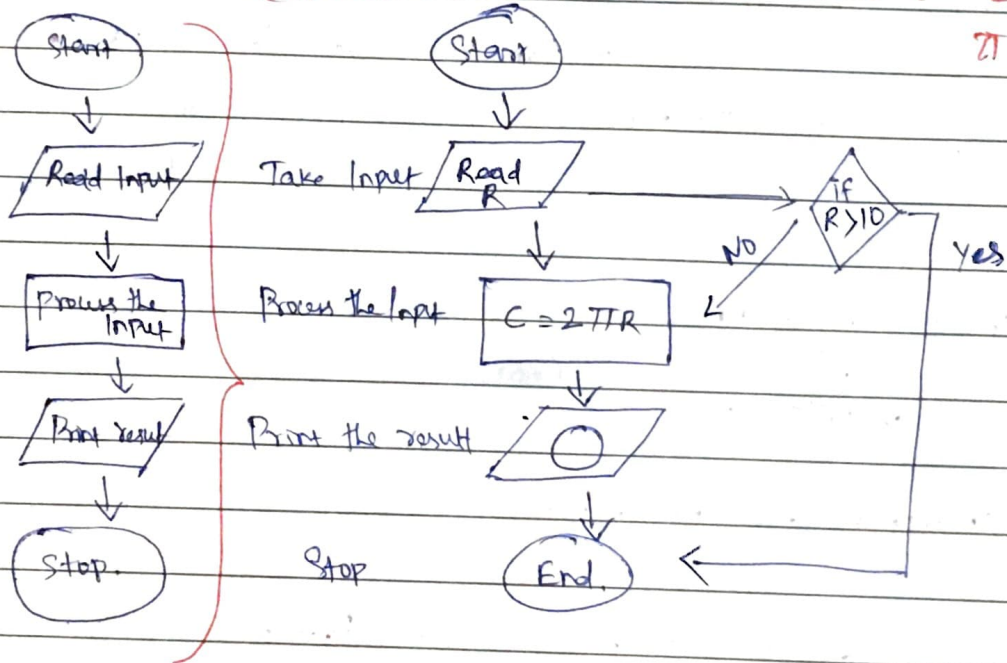 Start
Read Input
Process the
Input
Print result
Stop.
Start
Take Input
Read
R
if
R>10
NO
Yes
Process the Input
C = 2πR
Print the result
Stop
End.